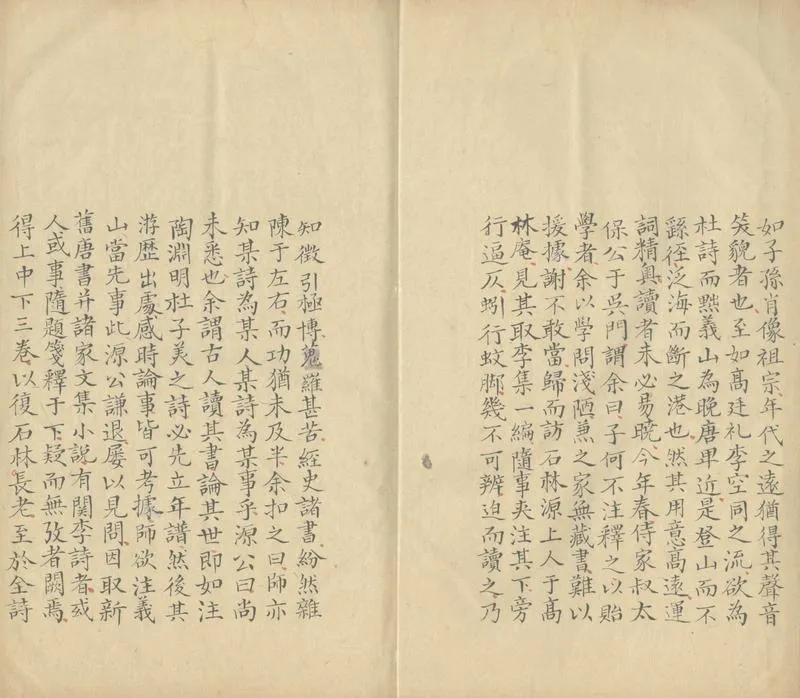 如子孫肖像祖宗年代之遠猶得其聲音
笑貌者也至如高廷礼李空同之流欲為
杜詩而黜義山為晚唐卑近是登山而不
繇徑泛海而斷之港也然其用意高遠運
詞精奥讀者未必易曉今年春侍家叔太
保公于吳門謂余曰子何不注釋之以貽
學者余以學問淺陋兼之家無藏書難以
援據謝不敢當歸而訪石林源上人于高
林庵見其取李集一編隨事夹注其下旁
行逼仄蚓行蚊脚幾不可辨迫而讀之乃
知徵引極博蒐羅甚苦經史諸書紛然雜
陳于左右而功猶未及半余扣之曰師亦
知某詩為某人某詩為某事乎源公曰尚
未悉也余謂古人讀其書論其世即如注
陶淵明杜子美之詩必先立年譜然後其
游歷出處感時論事皆可考據師欲注義
山當先事此源公謙退屡以見問因取新
舊唐書并諸家文集小説有関李詩者或
人或事隨題箋釋于下疑而無攷者闕焉
得上中下三卷以復石林長老至於全詩